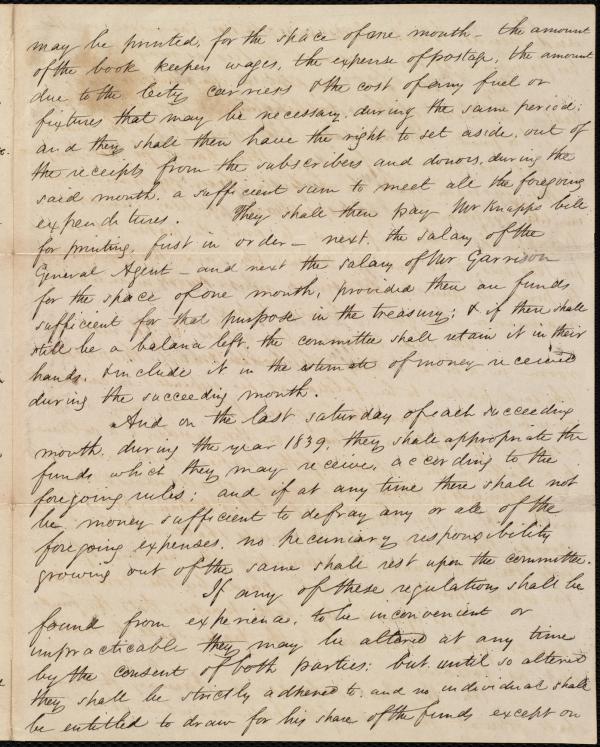 may be printed, for the space of one month - the amount
of the book keepers wages, the expense of postage, the amount
due to the City carriers & the cost of any fuel or
fixtures that may be necessary, during the same period;
and they shall then have the right to set aside, out of
the receipts from the subscribers and donors, during the
said month, a sufficient sum to meet all the foregoing
expenditures. They shall then pay Mr Knapps bill
for printing, first in order - next, the salary of the
General Agent - and next the salary of Mr Garrison
for the space of one month, provided there are funds
sufficient for that purpose in the treasury; & if there shall
still be a balance left, the committee shall retain it in their
hands, & include it in the estimate of money received
during the succeeding month.
And on the last saturday of each succeeding
month, during the year 1839, they shall appropriate the
funds which they may receive, according to the
foregoing rules; and if at any time there shall not
be money sufficient to defray any or all of the
foregoing expenses, no pecuniary responsibility
growing out of the same shall rest upon the committee.
If any of these regulations shall be
found from experience, to be inconvenient or
impracticable they may be altered at any time
by the consent of both parties; but until so altered
they shall be strictly adhered to, and no individual shall
be entitled to draw for his share of the funds except on